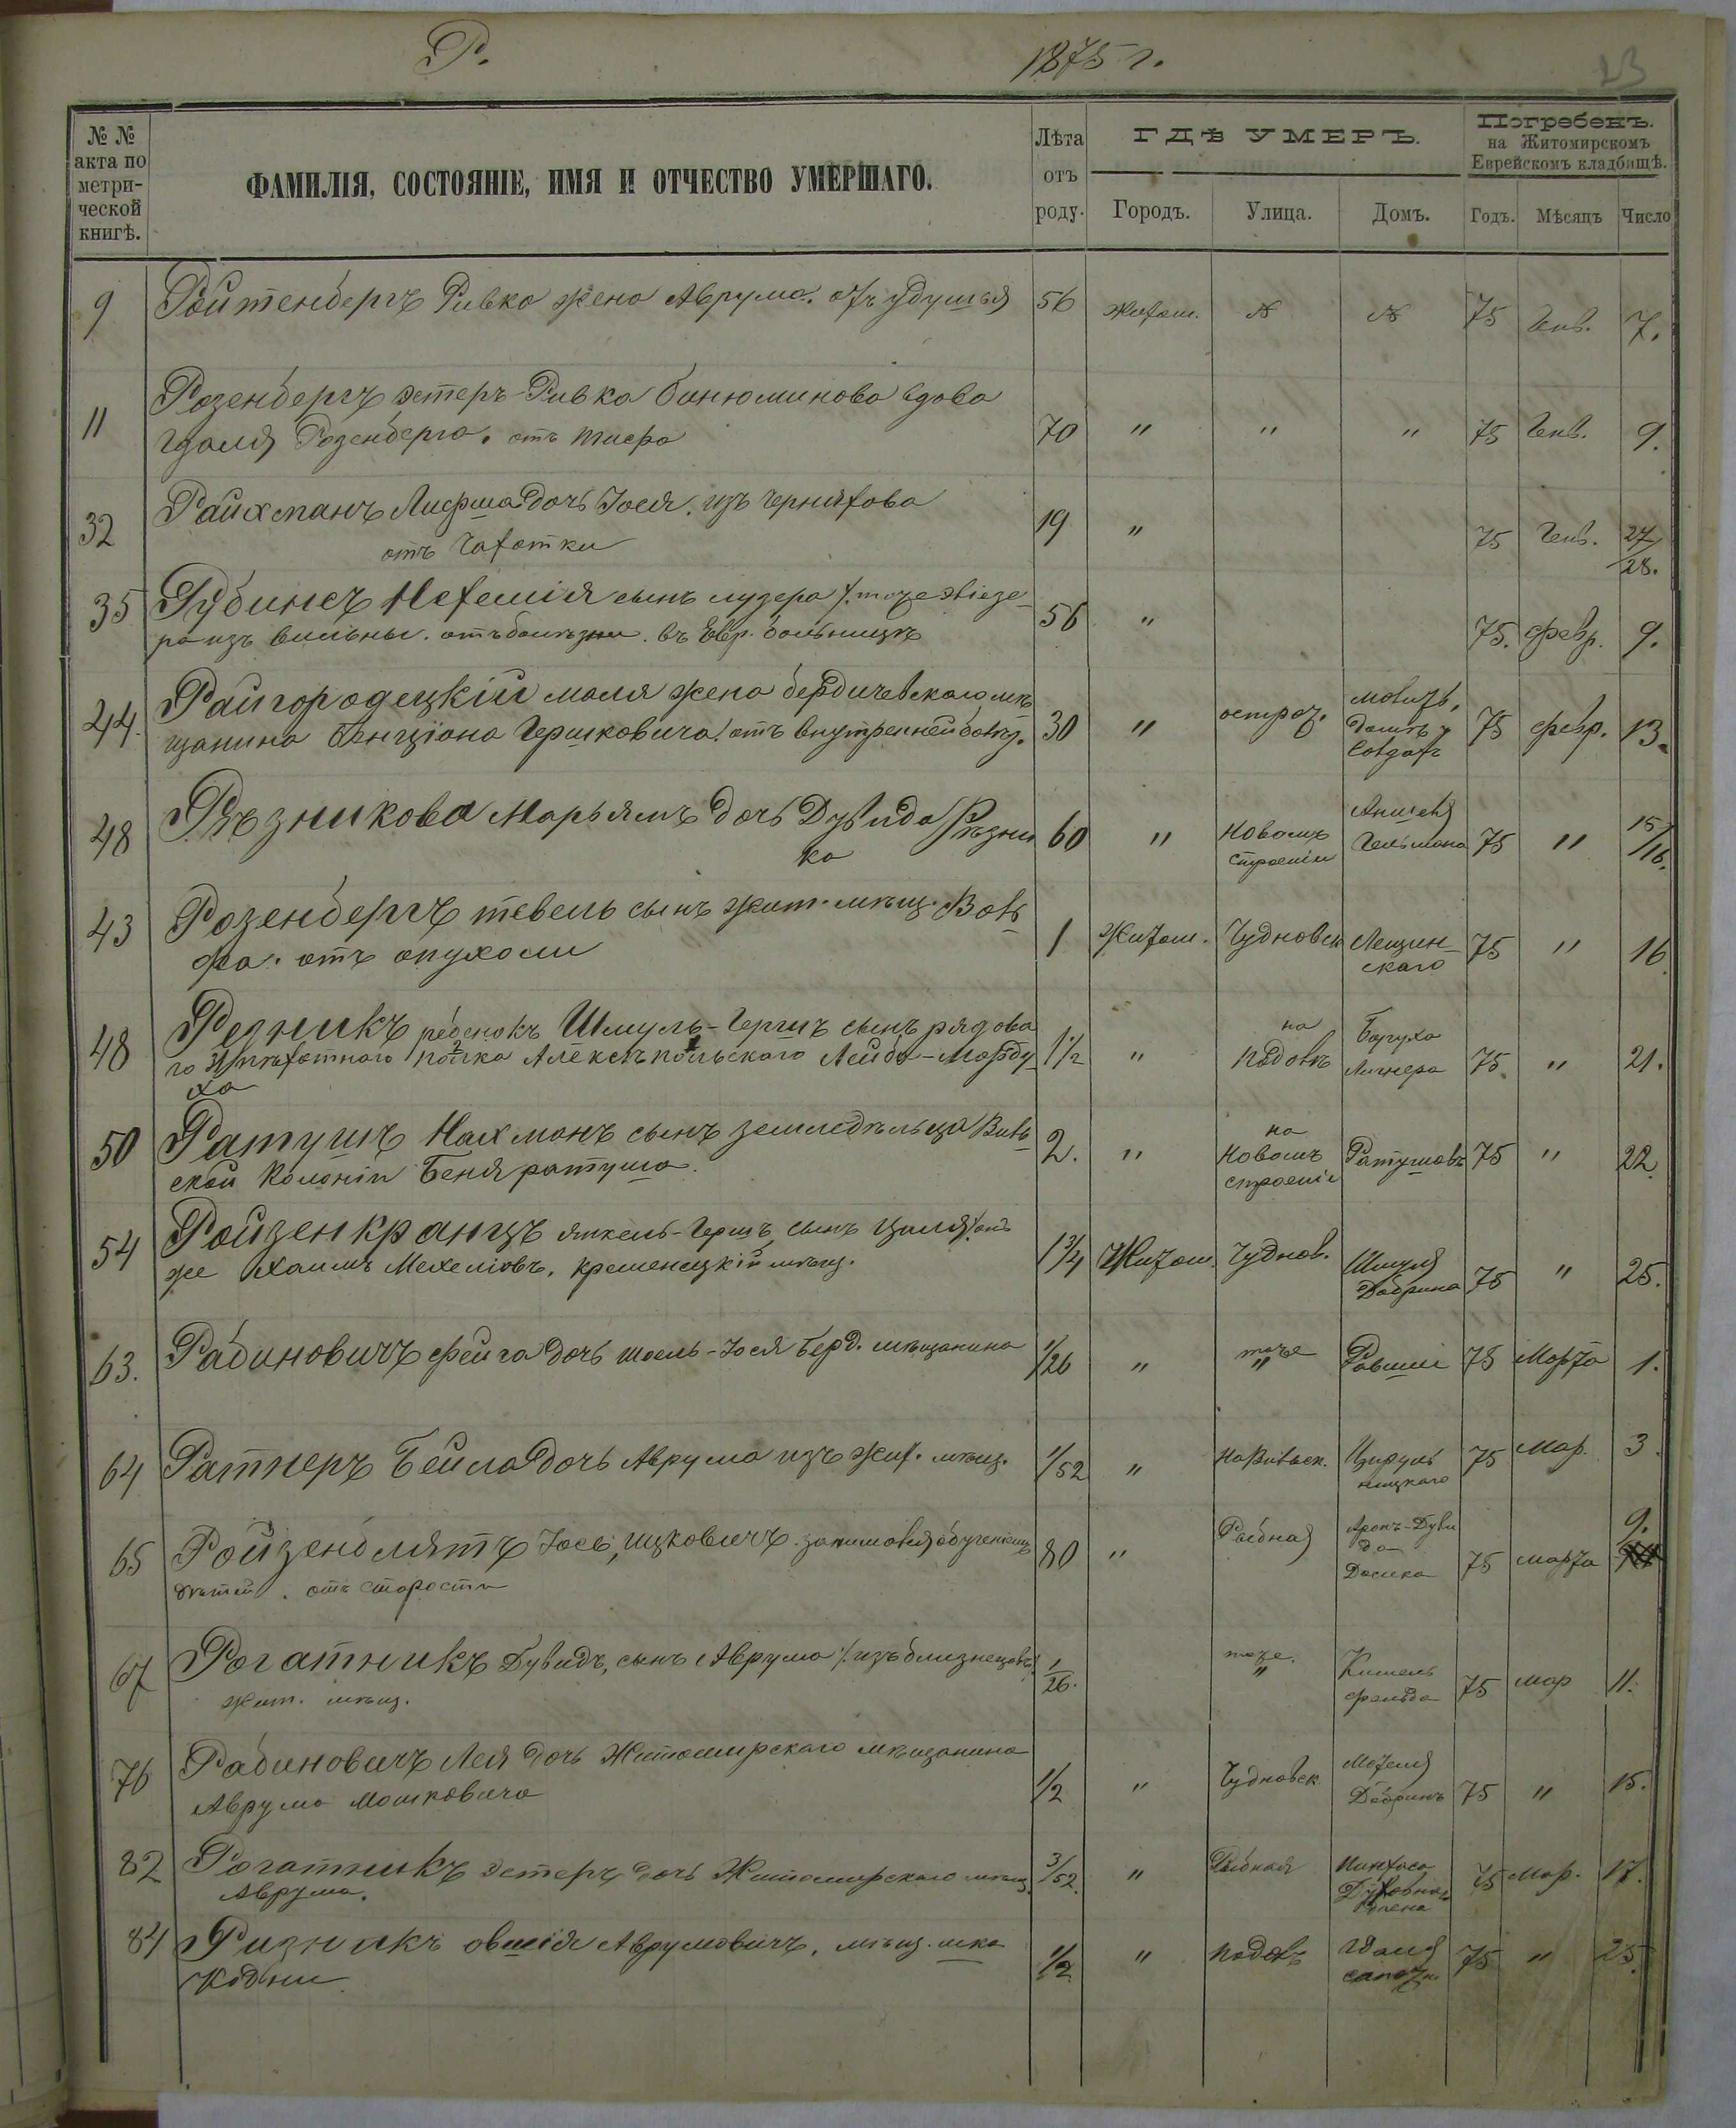 Р.
1875 г.
23
№ №
акта по
метри-
ческой
книгѣ.
ФАМИЛІЯ, СОСТОЯНІЕ, ИМЯ И ОТЧЕСТВО УМЕРШАГО.
Лѣта
отъ
роду.
ГДѢ УМЕРЪ.
Городъ.
Улица.
Домъ.
Погребенъ.
на Житомирскомъ
Еврейскомъ кладбищѣ.
Годъ.
Мѣсяцъ
Число
9 Ройтенбергъ Ривка жена Аврума. отъ удушья 56 Житом. 75 Генв. 7.
11 Розенбергъ Эстеръ-Ривка Бинюминова вдова
Гдаля Розенберга. отъ тифа 70 " " " 75 Генв. 9.
32 Райхманъ Лифша дочь Іося. изъ Черняхова 19 " 75 Генв. 27/
отъ Чахотки 28.
35 Рубинсъ Нехемія сынъ лузера /: тоже эліезе-
ра изъ вильны. отъ болѣзни. въ Евр. больницѣ 56 " 75. февр. 9.
44. Райгородецкій маля жена бердичевскаго мѣ
щанина Бенціона Гершковича. отъ внутренней болѣз. 30 " острож. 75 февр. 13.
домъ
48 Рѣзникова Марьямъ дочь Дувида Рѣзни
ка 60 " Новомъ
строеніи Гельмана 75 " 15/16.
43 Розенбергъ тевель сынъ жит. мѣщ. Воль
фа. отъ опухоли 1 Житом. Чудновск. Лещин-
скаго 75 " 16
48 Резникъ ребенокъ Шмуль-Гершъ сынъ рядова
го пѣхотнаго полка Алексѣпольскаго Лейба-Морду
ха 1 1/2 " на
Подолѣ Боруха
75. " 21.
50 Ратушъ Нахманъ сынъ земледѣльца Виль
ской Колоніи Беня ратуша. 2. " на
Новомъ
строеніи Ратушовъ 75 " 22
54 Розенкранцъ янкель-Гершъ, сынъ Цаля, онъ
же Хаимъ Мехеліовъ, кременецкій мѣщ. 1 3/4 Житом. Чуднов. Шмуля
Добрина 75 " 25.
63. Рабиновичъ фейга дочь шоель-Іося Берд. мѣщанина 1/26 " тоже
" 75 Марта 1.
64 Ратнеръ Бейла дочь Аврума изъ жит. мѣщ. 1/52 " Цируль
ницкаго 75 Мар. 3.
65 Ройзенблятъ Іось, ицковичъ. занимался обученіемъ
дѣтей. отъ старости 80 " Рыбная Аронъ-Дуви
да
75 марта 9.
67 Рогатникъ Дувидъ, сынъ Аврума /: изъ близнецовъ
жит. мѣщ. 1/26. тоже.
" Кишель
фельда 75 мар 11.
76 Рабиновичъ Лея дочь Житомирскаго мѣщанина
Аврума Мошковича 1/2 " Чудновск. Мотеля
Добринъ 75 " 15.
82 Рогатникъ эстеръ дочь Житомирскаго мѣщ.
Аврума. 3/52. " Рыбная Пинхаса
75 Мар. 17.
84 Ризникъ овшія Аврумовичъ, мѣщ. мка
Кодни 1/2 " Подолъ Гдаля
сапож. 75 " 25.